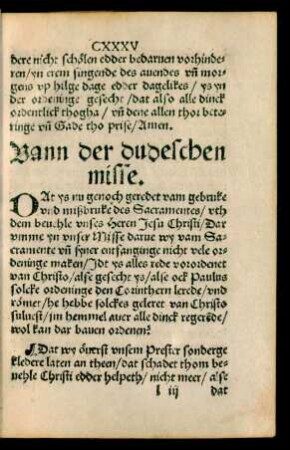 CXXXV
dere nicht schölen edder bedaruen vorhinde-
ren/yn erem singende des auendes vñ mor-
gens vp hilge dage edder dagelikes / ys yn
der ordeninge gesecht / dat also alle dinck
ordentlick thogha / vñ dene allen thor bete-
ringe vñ Gade tho prise/Amen.
Vann der dudeschen
misse.
DAt ys nu genoch geredet vam gebruke
vnd mißbruke des Sacramentes/vth
dem beuehle vnses Heren Jesu Christi/Dar
vmme yn vnser Misse darue wy vam Sa-
cramente vñ syner entfanginge nicht vele or-
deninge maken/Idt ys alles rede vorordenet
van Christo/alse gesecht ys/alse ock Paulus
solcke ordeninge den Corinthern lerede/vnd
römet/he hebbe solckes geleret van Christo
suluest/im hemmel auer alle dinck regerēde/
wol kan dar bauen ordenen?
Dat wy öuerst vnsem Prester sonderge
kledere laten an theen/dat schadet thom be-
uehle Christi edder helpeth/nicht meer/alse
l iij dat